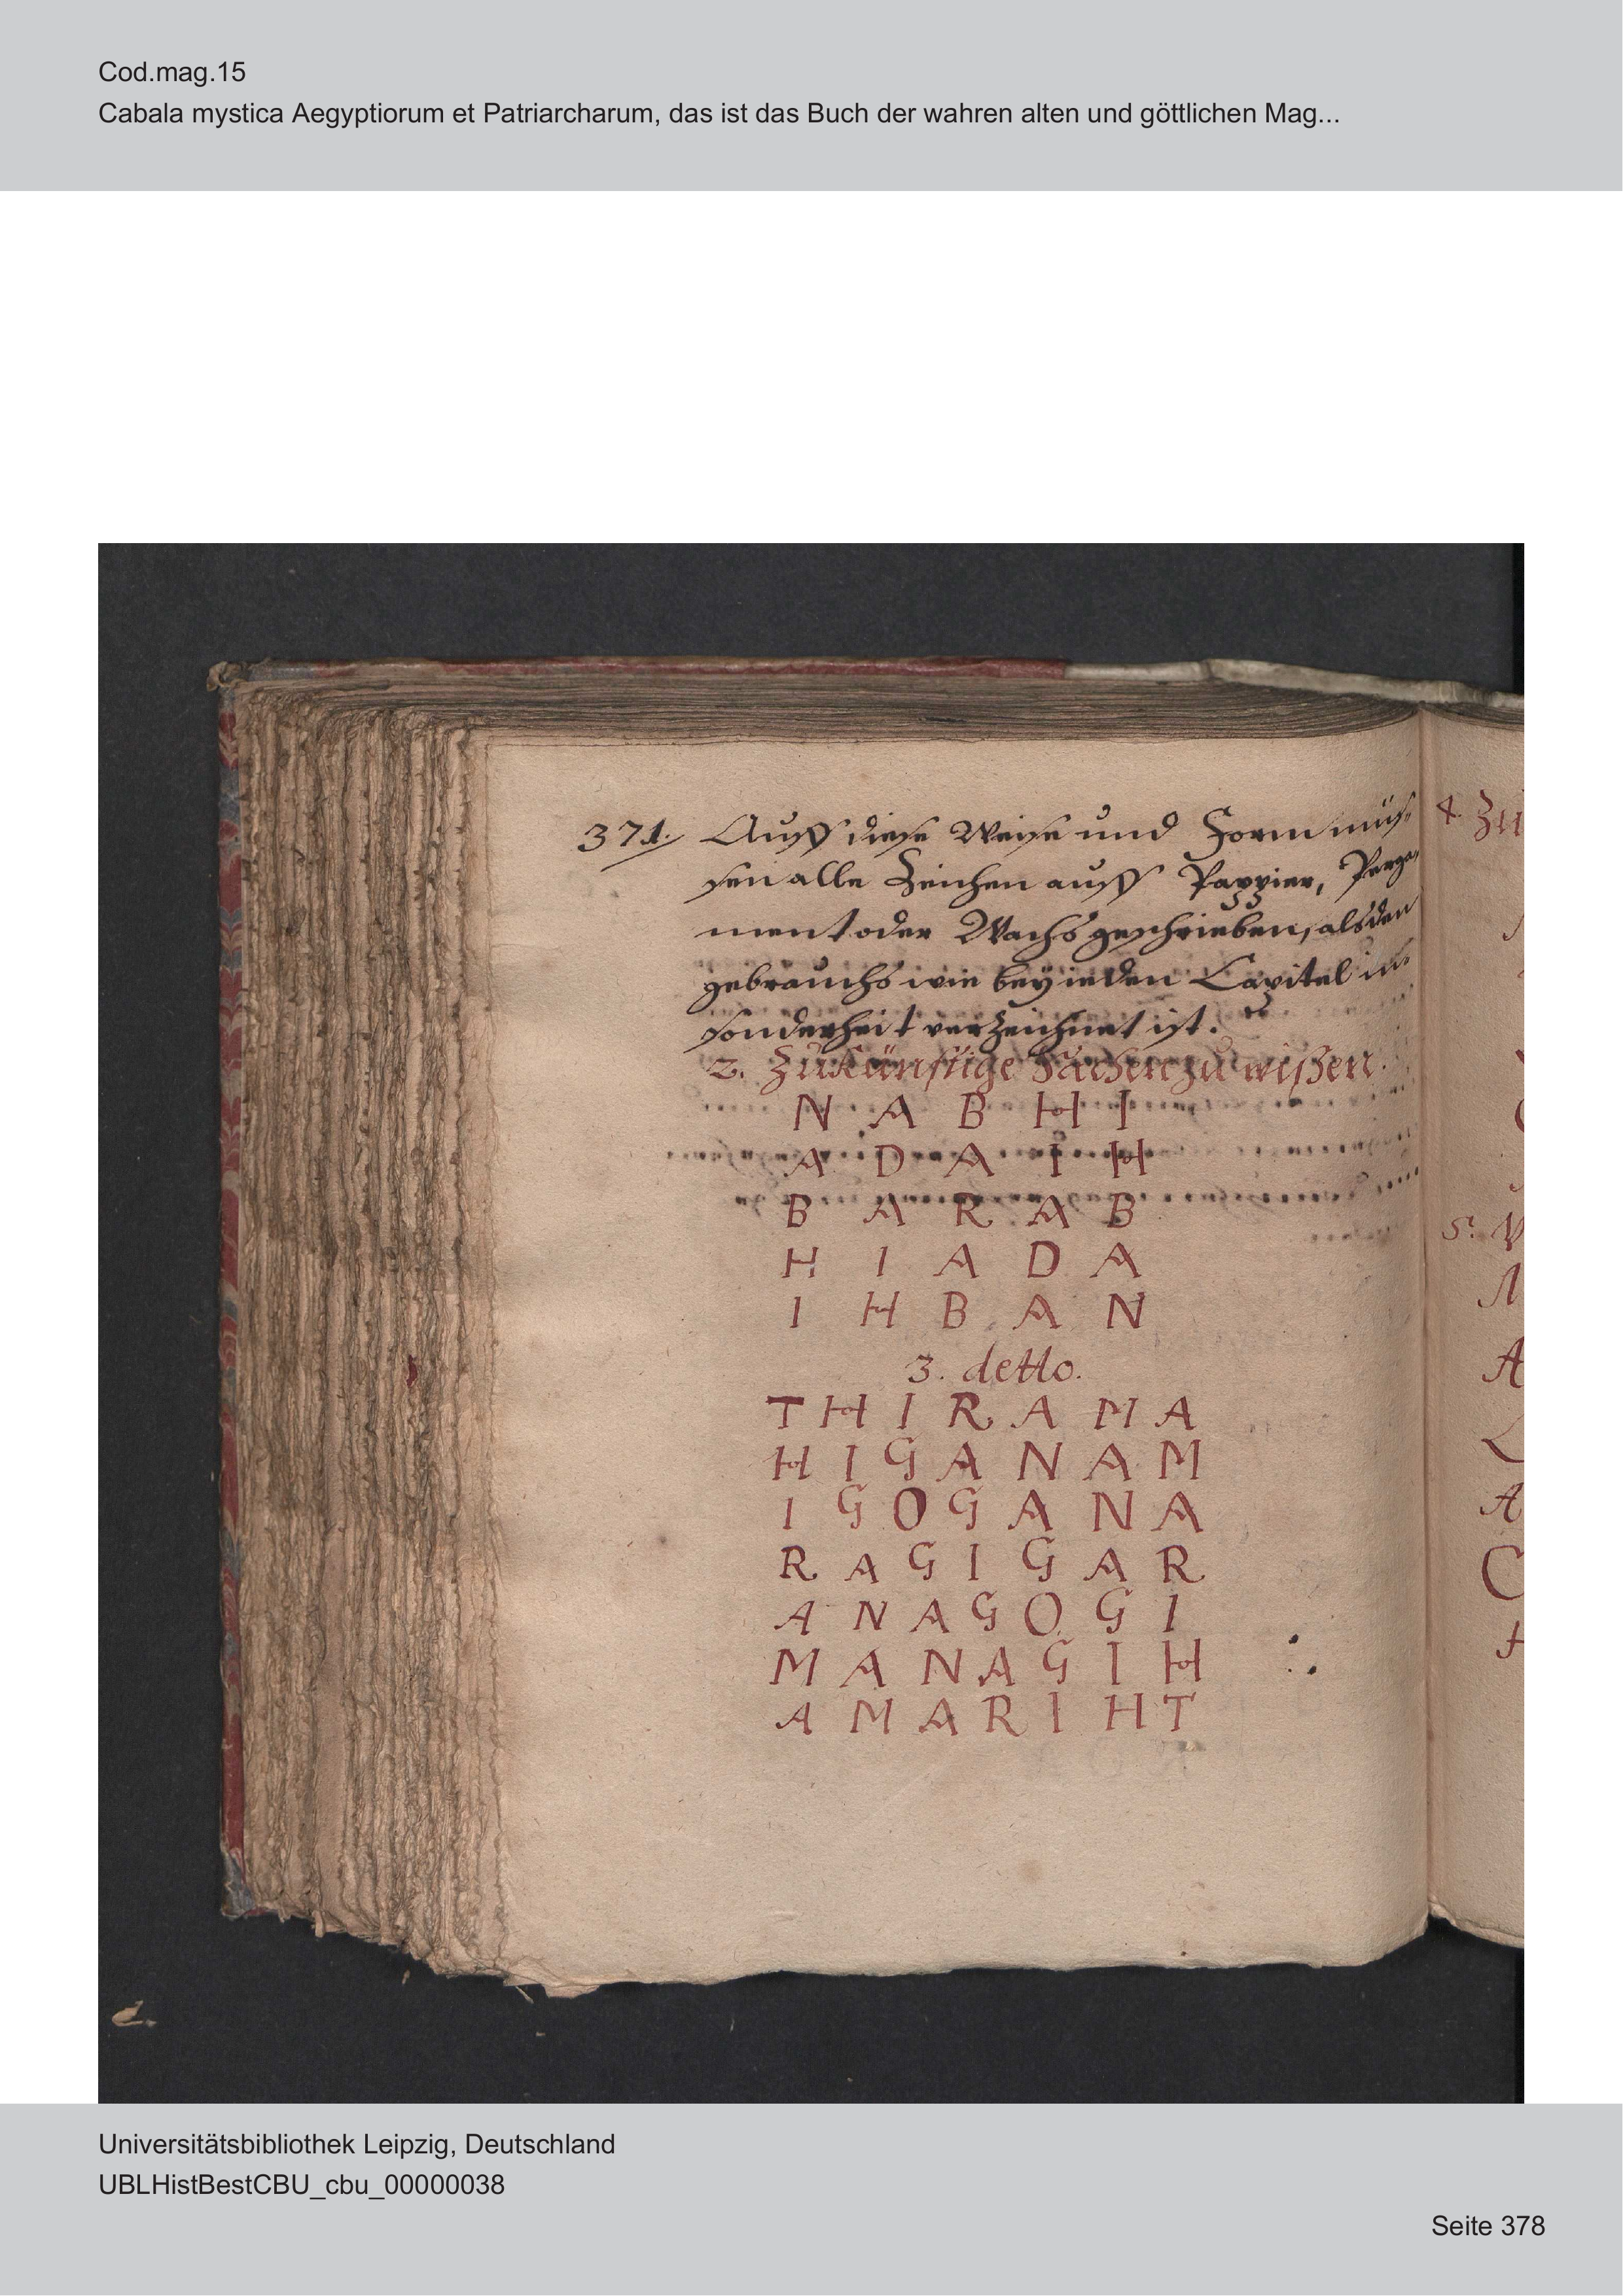 Cod.mag.15
Cabala mystica Aegyptiorum et Patriarcharum, das ist das Buch der wahren alten und göttlichen Mag...
371. Auff diese Weise und Form müs-
sen alle Zeichen auff Pappier, Perga-
ment oder Wachs geschrieben, alsden
gebrauchs wie beÿ ieden Capitel in-
sonderheit verzeichnet ist.
2. Zukünftige Sachen zu wißen.
N A B H I
A D A I H
B A R A B
H I A D A
I H B A N
3. detto.
T H I R A M A
H I G A N A M
I G O G A N A
R A G I G A R
A N A G O G I
M A N A G I H
A M A R I H T
4. Zu
5.
A
A
C
Universitätsbibliothek Leipzig, Deutschland
UBLHistBestCBU_cbu_00000038
Seite 378